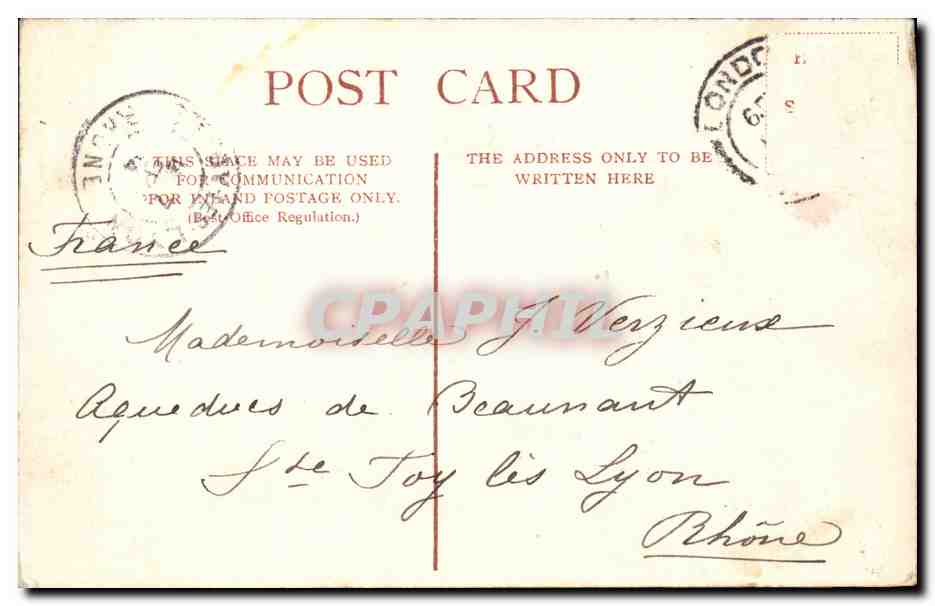 POST CARD
LONDO
THIS SPACE MAY BE USED
FOR COMMUNICATION
FOR INLAND POSTAGE ONLY.
(Post Office Regulation.)
THE ADDRESS ONLY TO BE
WRITTEN HERE
RHONE
France
CPAPHIL
Mademoiselle J. Verzieux
Aqueducs de Beaunant
Ste Foy lès Lyon
Rhône